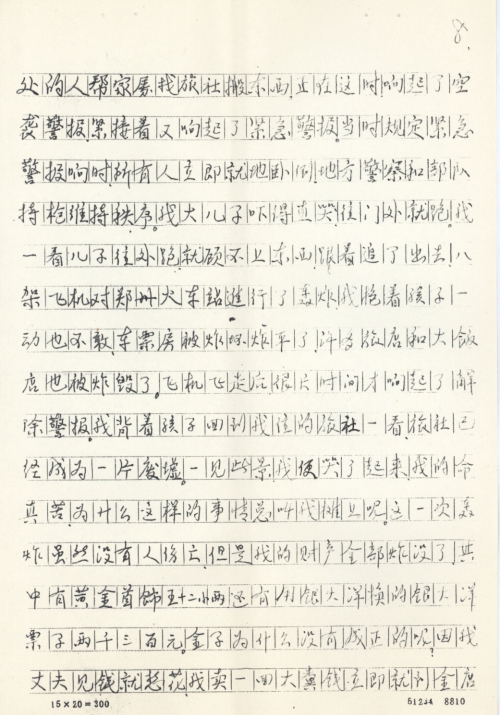 8.
处的人帮家属找旅社搬东西正在这时响起了空
袭警报,紧接着又响起了紧急警报。当时规定紧急
警报响时,所有人立即就地卧倒,地方警察和部队
持枪维持秩序。我大儿子吓得直哭往门外就跑。我
一看儿子往外跑就顾不上东西跟着追了出去,八
架飞机对郑州火车站进行了轰炸,我抱着孩子一
动也不敢,车票房被炸炸平了,许多旅店和大饭
店也被炸毁了。飞机飞走很长时间才响起了解
除警报。我背着孩子回到我住的旅社一看,旅社已
经成为一片废墟。一见此景我便哭了起来,我的命
真苦为什么这样的事情总叫我摊上呢。这一次轰
炸虽然没有人伤亡,但是我的财产全部炸没了,其
中有黄金首饰五十二小两还有用银大洋换的银大洋
票子两千三百元。金子为什么没有成正的呢,因我
丈夫见钱就想花,我卖一回大粪钱立即就到金店
15×20=300
51234 8810